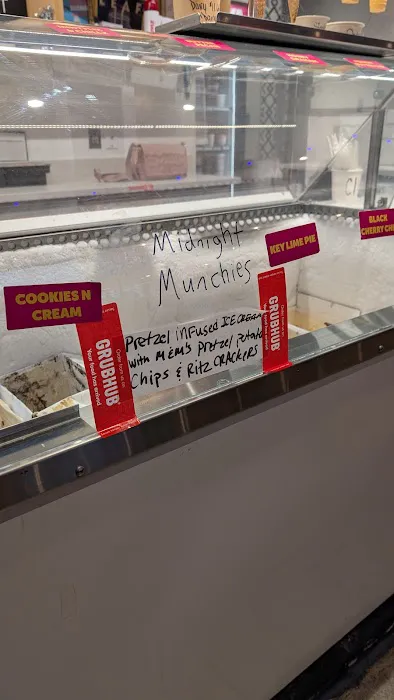 Midnight
Munchies
KEY LIME PIE
BLACK
CHERRY CH
COOKIES N
CREAM
Pretzel infused ICE CREAM
with M&M's Pretzel potato
Chips & Ritz CRACKERS
GRUBHUB
Your food has arrived
GRUBHUB